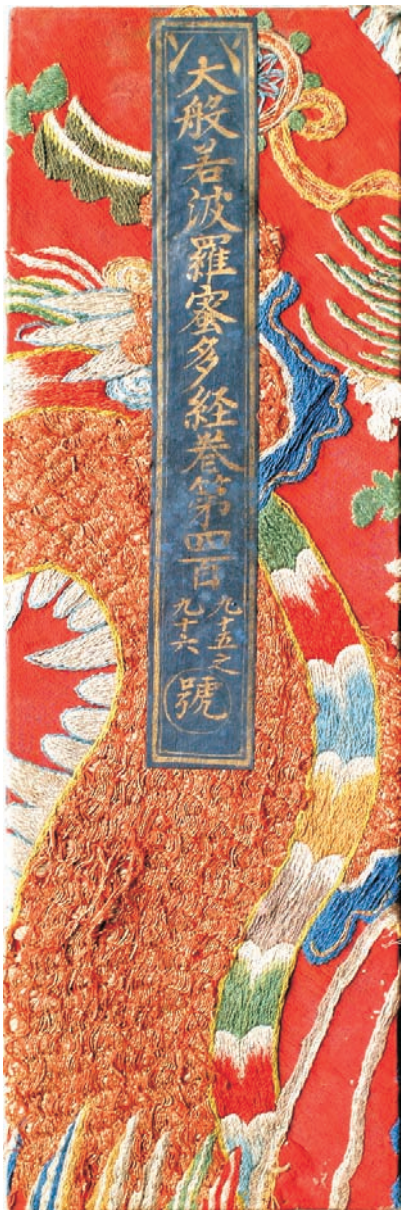 大般若波羅蜜多経巻第四百
九十五之
九十六
號